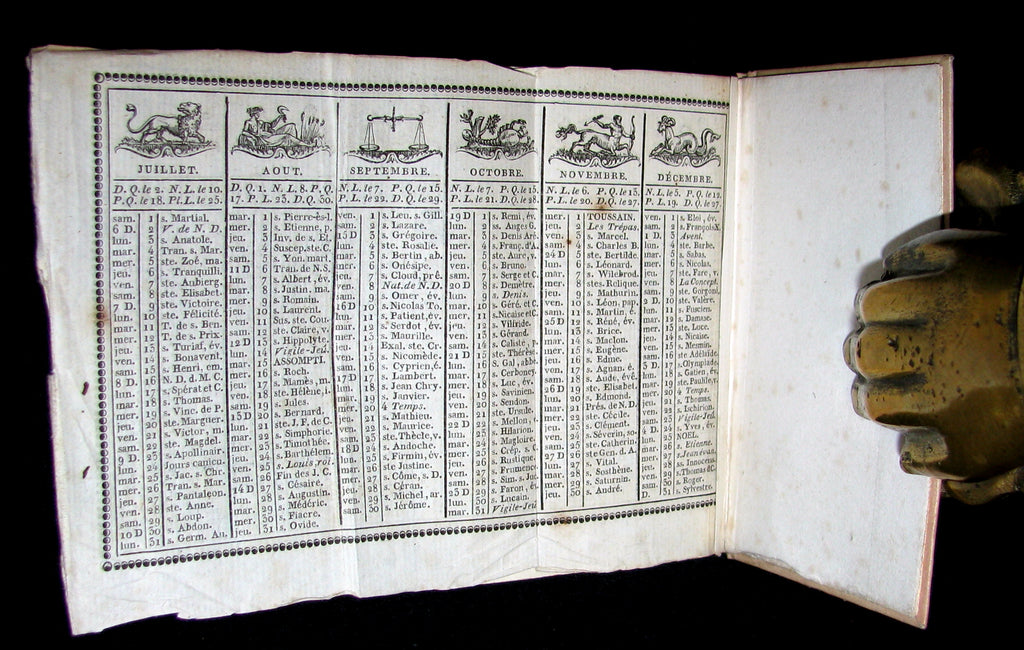 JUILLET.
D. Q. le 2. N. L. le 10.
P. Q. le 18. Pl. L. le 25.
sam. 1 s. Martial.
6 D 2 V. de N. D.
lun. 3 s. Anatole.
mar. 4 Tran. s. Mar.
mer. 5 ste. Zoé, ma.
jeu. 6 s. Tranquilli.
ven. 7 ste. Aubierg.
sam. 8 ste. Elisabet.
7 D 9 ste. Victoire.
lun. 10 ste. Félicité.
mar. 11 T. de s. Ben.
mer. 12 T. de s. Prix.
jeu. 13 s. Turiaf, év.
ven. 14 s. Bonavent.
sam. 15 s. Henri, em.
8 D 16 N. D. d. M. C.
lun. 17 s. Spérat et C.
mar. 18 s. Thomas.
mer. 19 s. Vinc. de P.
jeu. 20 ste. Marguer.
ven. 21 s. Victor, m.
sam. 22 ste. Magdel.
9 D 23 s. Apollinair.
lun. 24 Jours canicu.
mar. 25 s. Jac. s. Chr.
mer. 26 Tran. s. Mar.
jeu. 27 s. Pantaléon.
ven. 28 ste. Anne.
sam. 29 s. Loup.
10 D 30 s. Abdon.
lun. 31 s. Germ. Au.
AOUT.
D. Q. 1. N. L. 8. P. Q.
17. P. L. 23. D. Q. 30.
mar. 1 s. Pierre-ès-l.
mer. 2 s. Etienne, p.
jeu. 3 Inv. de s. Et.
ven. 4 Suscep. ste. C.
sam. 5 s. Yon, mart.
11 D 6 Tran. de N. S.
lun. 7 s. Albert, év.
mar. 8 s. Justin. ma.
mer. 9 s. Romain.
jeu. 10 s. Laurent.
ven. 11 Sus. ste. Cou.
sam. 12 ste. Claire, v.
12 D 13 s. Hippolyte.
lun. 14 Vigile-Jeû.
mar. 15 ASSOMPTI.
mer. 16 s. Roch.
jeu. 17 s. Mamès, m.
ven. 18 ste. Hélène, i.
sam. 19 s. Jules.
13 D 20 s. Bernard.
lun. 21 ste. J. F. de C.
mar. 22 s. Simphorie.
mer. 23 s. Timothée.
jeu. 24 s. Barthélem.
ven. 25 s. Louis roi.
sam. 26 Fin des J. C.
14 D 27 s. Césaire.
lun. 28 s. Augustin.
mar. 29 s. Médéric.
mer. 30 s. Fiacre.
jeu. 31 s. Ovide.
SEPTEMBRE.
N. L. le 7. P. Q. le 15.
P. L. le 22. D. Q. le 29.
ven. 1 s. Leu, s. Gill.
sam. 2 s. Lazare.
15 D 3 s. Grégoire.
lun. 4 ste. Rosalie.
mar. 5 s. Bertin, ab.
mer. 6 s. Onésipe.
jeu. 7 s. Cloud, pré.
ven. 8 Nat. de N. D.
sam. 9 s. Omer, év.
16 D 10 s. Nicolas To.
lun. 11 s. Patient, év.
mar. 12 s. Serdot, év.
mer. 13 s. Maurille.
jeu. 14 Exal. ste. Cr.
ven. 15 s. Nicomède.
sam. 16 s. Cyprien, é.
17 D 17 s. Lambert.
lun. 18 s. Jean Chry.
mar. 19 s. Janvier.
mer. 20 4 Temps.
jeu. 21 s. Mathieu.
ven. 22 s. Maurice.
sam. 23 ste. Thècle, v.
18 D 24 s. Andoche.
lun. 25 s. Firmin, év.
mar. 26 ste Justine.
mer. 27 s. Côme, s. D.
jeu. 28 s. Céran.
ven. 29 s. Michel, ar.
sam. 30 s. Jérôme.
OCTOBRE.
N. L. le 7. P. Q. le 15.
P. L. le 21. D. Q. le 28.
19 D 1 s. Remi, év.
lun. 2 ss. Anges G.
mar. 3 s. Denis Aré.
mer. 4 s. Franç. d'A.
jeu. 5 ste. Aure, v.
ven. 6 s. Bruno.
sam. 7 s. Serge et C.
20 D 8 s. Demètre.
lun. 9 s. Denis.
mar. 10 s. Géré. et C.
mer. 11 s. Nicaise et C.
jeu. 12 s. Vilfride.
ven. 13 s. Gérand.
sam. 14 s. Caliste, p.
21 D 15 ste. Thérèse.
lun. 16 s. Gal, abbé.
mar. 17 s. Cerboney.
mer. 18 s. Luc, év.
jeu. 19 s. Savinien.
ven. 20 s. Sendon.
sam. 21 ste. Ursule.
22 D 22 s. Mellon, é.
lun. 23 s. Hilarion.
mar. 24 s. Magloire.
mer. 25 s. Crép. s. C.
jeu. 26 s. Rustique.
ven. 27 s. Frumence.
sam. 28 s. Sim. s. Jud.
23 D 29 s. Faron, é.
lun. 30 s. Lucain.
mar. 31 Vigile-Jeû
NOVEMBRE.
N. L. le 6. P. Q. le 13.
P. L. le 20. D. Q. le 27.
mer. 1 TOUSSAIN.
jeu. 2 Les Trépas.
ven. 3 s. Marcel.
sam. 4 s. Charles B.
24 D 5 ste. Bertilde.
lun. 6 s. Léonard.
mar. 7 s. Wilebrod.
mer. 8 stes. Relique.
jeu. 9 s. Mathurin.
ven. 10 s. Léon, pap.
sam. 11 s. Martin, é.
25 D 12 s. Réné, év.
lun. 13 s. Brice.
mar. 14 s. Maclon.
mer. 15 s. Eugène.
jeu. 16 s. Edme.
ven. 17 s. Agnan. é.
sam. 18 s. Aude, évê.
26 D 19 ste. Elisabet.
lun. 20 s. Edmond.
mar. 21 Prés. de N. D.
mer. 22 ste. Cécile.
jeu. 23 s. Clément.
ven. 24 s. Séverin, so.
sam. 25 ste. Catherin.
27 D 26 ste Gen. d. A.
lun. 27 s. Vital.
mar. 28 s. Sosthène.
mer. 29 s. Saturnin.
jeu. 30 s. André.
DÉCEMBRE.
N. L. 5. P. Q. le 12.
P. L. 19. D. Q. le 27.
ven. 1 s. Eloi, év.
sam. 2 s. François X.
1 D. 3 Avent.
lun. 4 ste. Barbe.
mar. 5 s. Sabas.
mer. 6 s. Nicolas.
jeu. 7 ste. Fare, v.
ven. 8 La Concept.
sam. 9 ste. Gorgoni.
2 D. 10 ste. Valère.
lun. 11 s. Fuscien.
mar. 12 s. Damase.
mer. 13 ste. Luce.
jeu. 14 s. Nicaise.
ven. 15 s. Mesmin.
sam. 16 ste. Adélaide.
3 D. 17 s. Olympiade.
lun. 18 s. Gatien, év.
mar. 19 ste. Paulile, v.
mer. 20 4 Temps.
jeu. 21 s. Thomas.
ven. 22 s. Ischirion.
sam. 23 Vigile-Jeû.
4 D. 24 s. Yves, év.
lun. 25 NOEL.
mar. 26 s. Etienne.
mer. 27 s. Jean évan.
jeu. 28 ss. Innocens.
ven. 29 s. Thomas &C.
sam. 30 s. Roger.
D. 31 s. Sylvestre.